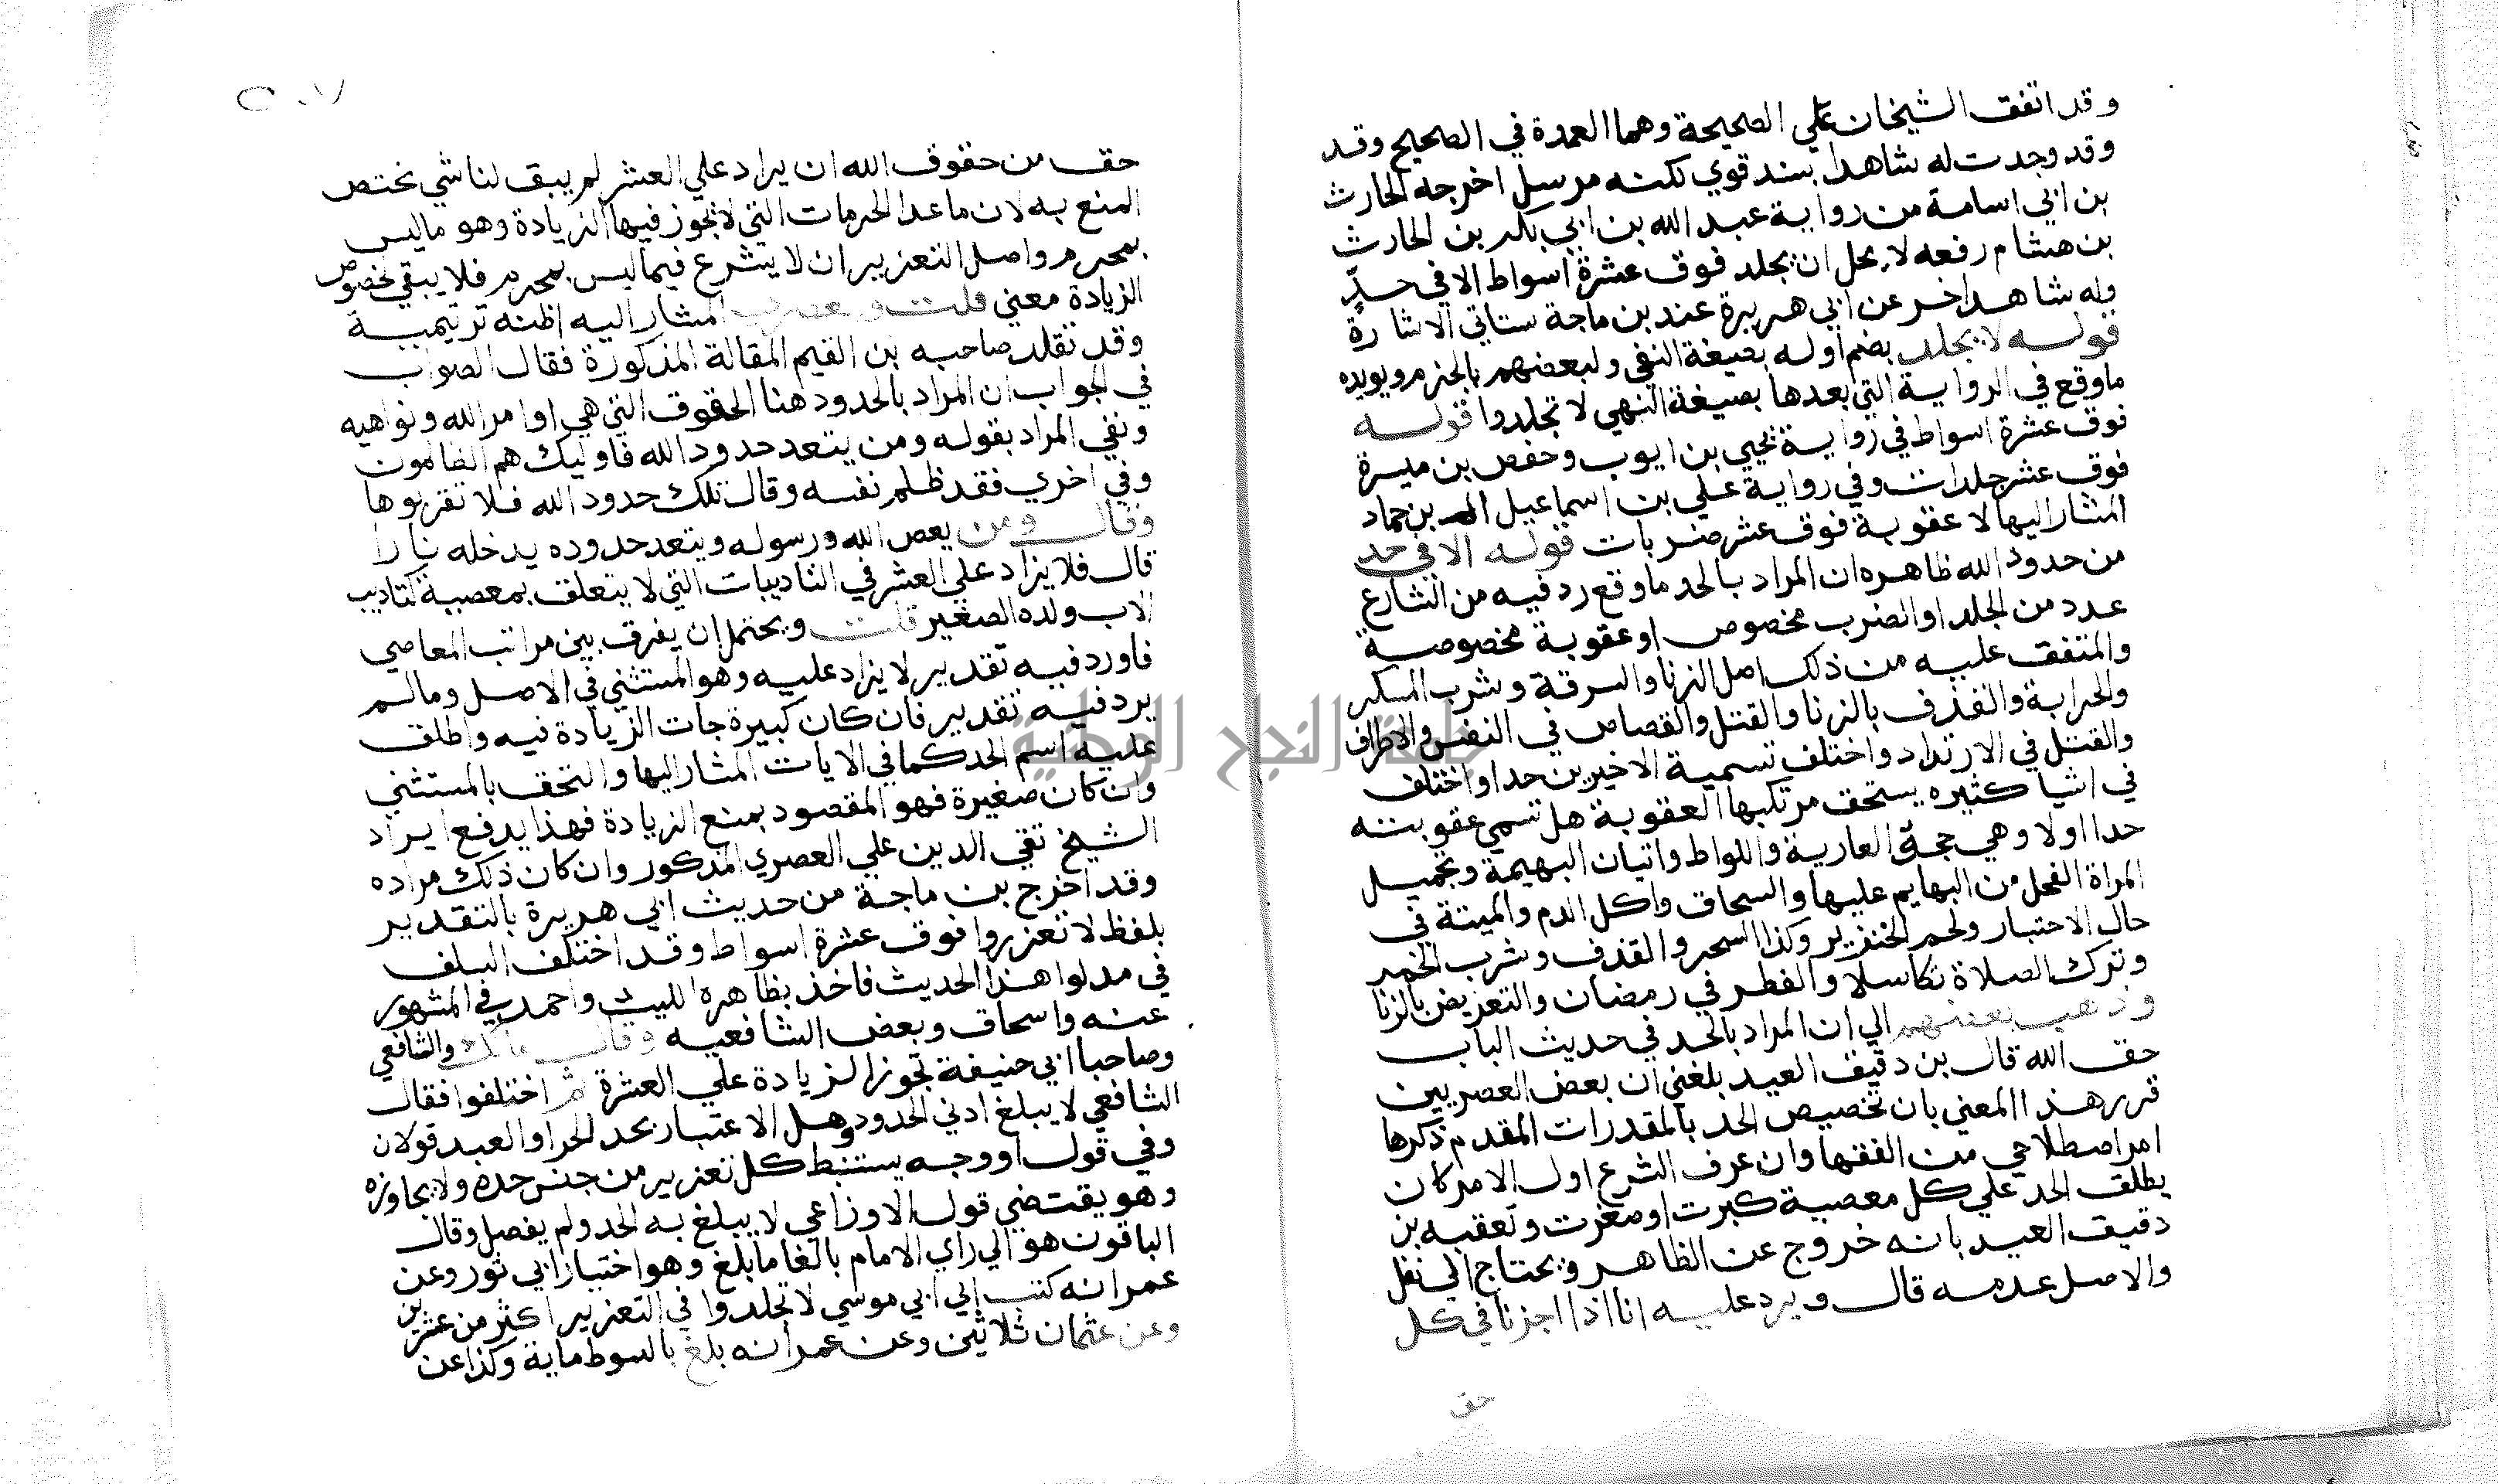 وقد اتفق الشيخان علي الصحيحة وهما العمدة في الصحيح وقد
وقد وجدت له شاهدا بسند قوي لكنه مرسل اخرجه الحارث
بن ابي اسامة من رواية عبد الله بن ابي بكر بن الحارث
بن هشام رفعه لا يحل ان يجلد فوق عشرة اسواط الا في حدٍّ
وله شاهد اخر عن ابي هريرة عند بن ماجة ستاتي الاشارة
قوله لا يجلد بضم اوله بصيغة النفي ولبعضهم بالجزم ويويده
ما وقع في الرواية التي بعدها بصيغة النهي لا تجلدوا قوله
فوق عشرة اسواط في رواية يحيي بن ايوب وحفص بن ميسرة
فوق عشر جلدات وفي رواية علي بن اسماعيل بن حماد
المشار اليها لا عقوبة فوق عشر ضربات قوله الا في حد
من حدود الله ظاهره ان المراد بالحد ما وقع رد فيه من الشارع
عدد من الجلد او الضرب مخصوص او عقوبة مخصوصة
والمتفق عليه من ذلك اصل الزنا والسرقة وشرب المسكر
والحرابة والقذف بالزنا والقتل والقصاص في النفس والاطراف
والقتل في الارتداد واختلف تسمية الاخيرين حدا واختلف
في اشيا كثيره يستحق مرتكبها العقوبة هل تسمي عقوبته
حدا اولا وهي جحد العارية واللواط واتيان البهيمة وتحميل
المراة الفحل من البهايم عليها والسحاق واكل الدم والميتة في
حال الاختيار ولحم الخنزير وكذا السحر والقذف وشرب الخمر
وترك الصلاة تكاسلا والفطر في رمضان والتعريض بالزنا
وذهب بعضهم الي ان المراد بالحد في حديث الباب
حق الله قال بن دقيق العيد بلغني ان بعض العصريين
قرر هذا المعني بان تخصيص الحد بالمقدرات المقدم ذكرها
امر اصطلاحي من الفقها وان عرف الشرع اول الامر كان
يطلق الحد علي كل معصية كبرت او صغرت وتعقبه بن
دقيق العيد بانه خروج عن الظاهر ويحتاج الي نقل
والاصل عدمه قال ويرد عليه انا اذا اجزنا في كل
حق
٢٠٧
حق من حقوق الله ان يراد علي العشر لم يبق لنا شي يختص
المنع به لان ما عدا الحرمات التي لا يجوز فيها الزيادة وهو ما ليس
بمحرم واصل التعزير ان لا يشرع فيما ليس بمحرم فلا يبقي لخصوص
الزيادة معني قلت المشار اليه اظنه تر تيمية
وقد تقلد صاحبه بن القيم المقالة المذكورة فقال الصواب
في الجواب ان المراد بالحدود هنا الحقوق التي هي اوامر الله ونواهيه
وبقي المراد بقوله ومن يتعد حدود الله فاوليك هم الظالمون
وفي اخري فقد ظلم نفسه وقال تلك حدود الله فلا تقربوها
وقال ومن يعص الله ورسوله ويتعد حدوده يدخله نارا
قال فلا يزاد علي العشر في التاديبات التي لا يتعلق بمعصية كتاديب
الاب ولده الصغير قلت ويحتمل ان يفرق بين مراتب المعاصي
فاورد فيه تقدير لا يزاد عليه وهو المستثني في الاصل ومالم
يرد فيه تقدير فان كان كبيرة جات الزيادة فيه واطلق
عليه اسم الحد كما في الايات المشار اليها والتحق بالمستثني
وان كان صغيرة فهو المقصود بمنع الزيادة فهذا يدفع ايراد
الشيخ تقي الدين علي العصري المذكور وان كان ذلك مراده
وقد اخرج بن ماجة من حديث ابي هريرة بالتقدير
بلفظ لا تعزروا فوق عشرة اسواط وقد اختلف السلف
في مدلوا هذا الحديث فاخذ بظاهره الليث واحمد في المشهور
عنه واسحاق وبعض الشافعيه وقال مالك والشافعي
وصاحبا ابي حنيفة تجوز الزيادة علي العشرة ثم اختلفوا فقال
الشافعي لا يبلغ ادني الحدود وهل الاعتبار بحد الحر او العبد قولان
وفي قول او وجه يستنبط كل تعزير من جنس حده ولا يجاوزه
وهو يقتضي قول الاوزاعي لا يبلغ به الحد ولم يفصل وقال
الباقون هو الي راي الامام بالغا ما بلغ وهو اختيار ابي ثور وعن
عمر انه كتب الي ابي موسي لا تجلدوا في التعزير اكثر من عشرين
وعن عثمان ثلاثين وعن عمر انه بلغ بالسوط ماية وكذا عن
جامعة النجاح الوطنية